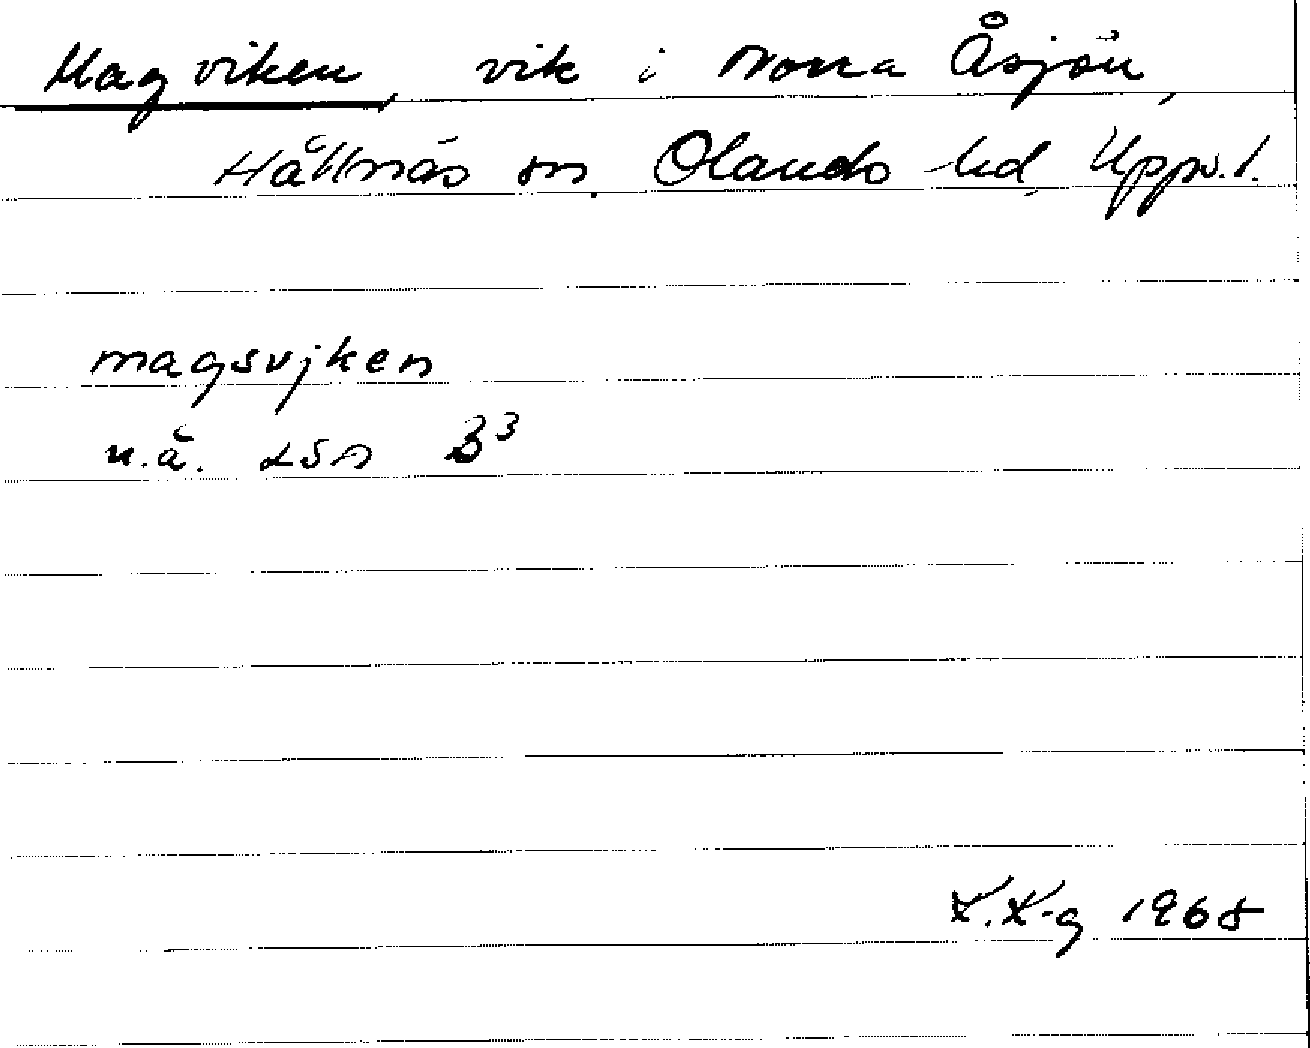 Magviken, vik i Norra Åsjön,
Hållnäs sn, Olands hd, Upps. l.
magsvjken
u.ä. LSn B³
K.K-g 1968